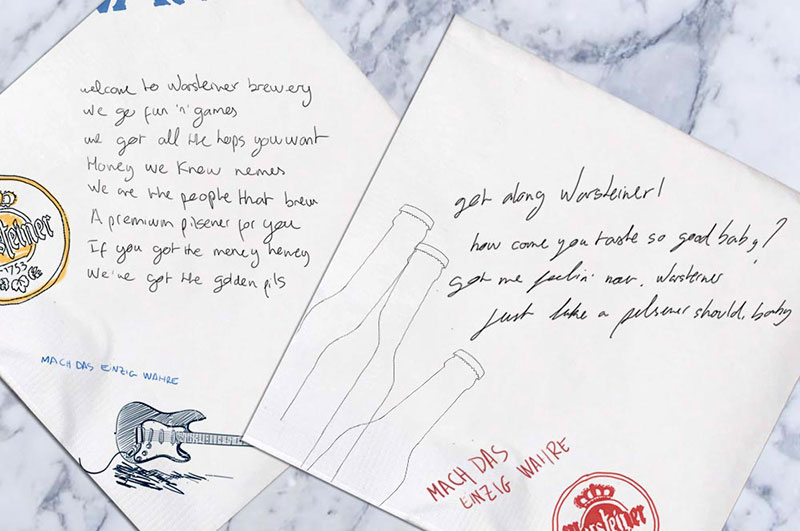 welcome to Warsteiner brewery
we go fun 'n' games
we got all the hops you want
Honey we know names
We are the people that brew
A premium pilsener for you
If you got the money honey
We've got the golden pils
steiner
1753
MACH DAS EINZIG WAHRE
get along Warsteiner!
how come you taste so good baby?
got me feelin' now, Warsteiner
just like a pilsener should, baby
MACH DAS
EINZIG WAHRE
Warsteiner